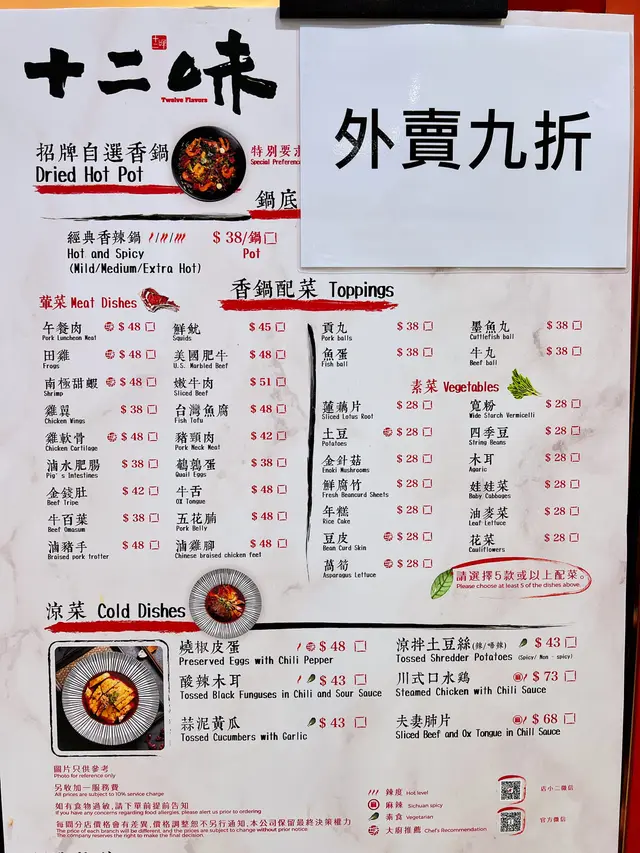 十二味
Twelve Flavors
外賣九折
招牌自選香鍋
Dried Hot Pot
特別要求
Special Preference
鍋底
經典香辣鍋 $ 38/鍋
Hot and Spicy Pot
(Mild/Medium/Extra Hot)
香鍋配菜 Toppings
葷菜 Meat Dishes
午餐肉 $ 48
Pork Luncheon Meat
田雞 $ 48
Frogs
南極甜蝦 $ 48
Shrimp
雞翼 $ 38
Chicken Wings
雞軟骨 $ 48
Chicken Cartilage
滷水肥腸 $ 38
Pig's Intestines
金錢肚 $ 42
Beef Tripe
牛百葉 $ 38
Beef Omasum
滷豬手 $ 48
Braised pork trotter
鮮魷 $ 45
Squids
美國肥牛 $ 48
U.S. Marbled Beef
嫩牛肉 $ 51
Sliced Beef
台灣魚腐 $ 48
Fish Tofu
豬頸肉 $ 42
Pork Neck Meat
鵪鶉蛋 $ 38
Quail Eggs
牛舌 $ 48
OX Tongue
五花腩 $ 48
Pork Belly
滷雞腳 $ 48
Chinese braised chicken feet
貢丸 $ 38
Pork balls
魚蛋 $ 38
Fish ball
墨魚丸 $ 38
Cuttlefish ball
牛丸 $ 38
Beef ball
素菜 Vegetables
蓮藕片 $ 28
Sliced Lotus Root
土豆 $ 28
Potatoes
金針菇 $ 28
Enoki Mushrooms
鮮腐竹 $ 28
Fresh Beancurd Sheets
年糕 $ 28
Rice Cake
豆皮 $ 28
Bean Curd Skin
萵筍 $ 28
Asparagus Lettuce
寬粉 $ 28
Wide Starch Vermicelli
四季豆 $ 28
String Beans
木耳 $ 28
Agaric
娃娃菜 $ 28
Baby Cabbages
油麥菜 $ 28
Leaf Lettuce
花菜 $ 28
Cauliflowers
請選擇5款或以上配菜。
Please choose at least 5 of the dishes above.
涼菜 Cold Dishes
燒椒皮蛋 $ 48
Preserved Eggs with Chili Pepper
酸辣木耳 $ 43
Tossed Black Funguses in Chili and Sour Sauce
蒜泥黃瓜 $ 43
Tossed Cucumbers with Garlic
涼拌土豆絲(辣/唔辣) $ 43
Tossed Shredder Potatoes (Spicy/ Non - spicy)
川式口水鷄 $ 73
Steamed Chicken with Chili Sauce
夫妻肺片 $ 68
Sliced Beef and Ox Tongue in Chill Sauce
圖片只供參考
Photo for reference only
另收加一服務費
All prices are subject to 10% service charge
如有食物過敏,請下單前提前告知
If you have concerns regarding food allergies, please alert us prior to ordering
每間分店價格會有差異,價格調整恕不另行通知,本公司保留最終決策權力
The price of each branch will be different, and the prices are subject to change without prior notice.
The company reserves the right to make the final decision.
辣度 Hot level
麻辣 Sichuan spicy
素食 Vegetarian
大廚推薦 Chef's Recommendation
店小二微信
官方微信